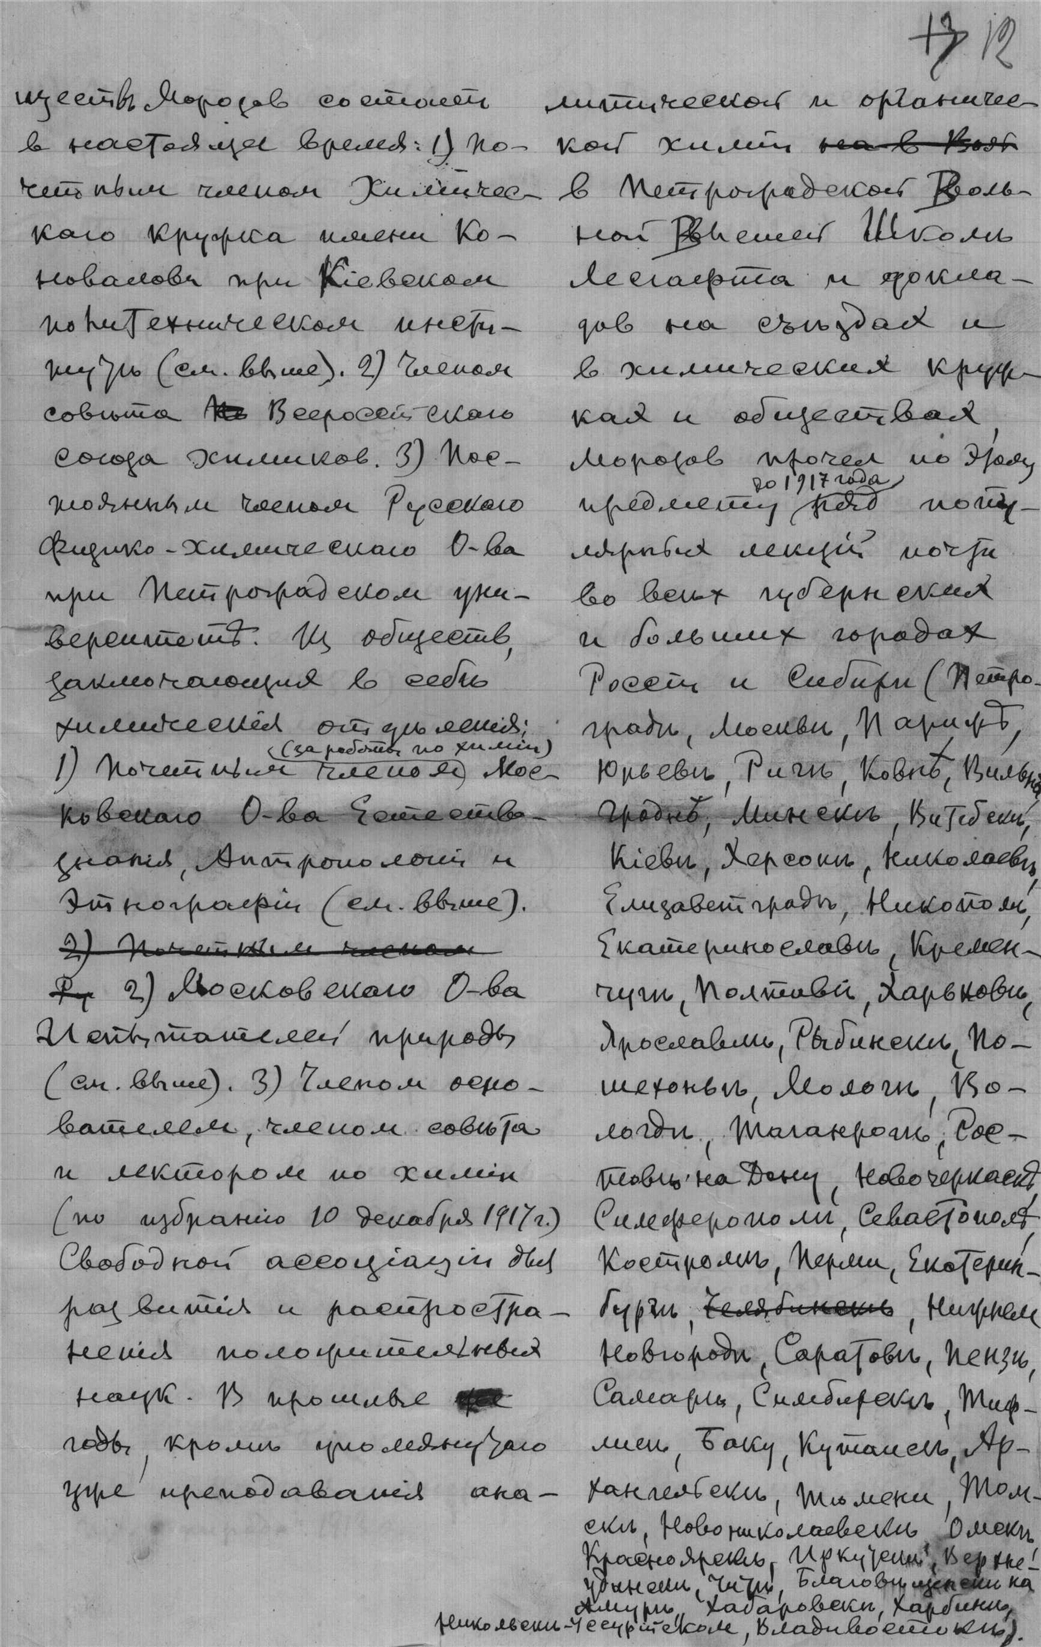 13 12
ществъ Морозов состоит
в настоящее время: 1) По-
четным членом Химичес-
каго кружка имени Ко-
новалова при Кіевском
политехническом инсти-
тутѣ (см. выше). 2) Членом
совѣта Всероссійскаго
союза химиков. 3) Пос-
тоянным членом Русскаго
Физико-химическаго О-ва
при Петроградском уни-
верситетѣ. Из обществ,
заключающих в себѣ
химическія отдѣленія:
(за работы по химіи)
1) Почетным членом Мос-
ковскаго О-ва Естество-
знанія, Антропологіи и
Этнографіи (см. выше).
2) Почетным членом
Ру 2) Московскаго О-ва
Испытателей природы
(см. выше). 3) Членом осно-
вателем, членом совѣта
и лектором по химіи
(по избранію 10 декабря 1917 г.)
Свободной ассоціаціи для
развитія и распростра-
ненія положительных
наук. В прошлые
годы, кромѣ упомянутаго
уже преподаванія ана-
литической и органичес-
кой химіи на в Выс
в Петроградской Воль-
ной Высшей Школѣ
Лесгафта и докла-
дов на съѣздах и
в химических круж-
ках и обществах,
Морозов прочел по этому
до 1917 года
предмету ряд попу-
лярных лекцій почти
во всѣх губернских
и больших городах
Россіи и Сибири (Петро-
градѣ, Москвѣ, Парижѣ,
Юрьевѣ, Ригѣ, Ковнѣ, Вильнѣ,
Гроднѣ, Минскѣ, Витебскѣ,
Кіевѣ, Херсонѣ, Николаевѣ,
Елизаветградѣ, Никополѣ,
Екатеринославѣ, Кремен-
чугѣ, Полтавѣ, Харьковѣ,
Ярославлѣ, Рыбинскѣ, По-
шехоньѣ, Мологѣ, Во-
логдѣ, Таганрогѣ, Рос-
товѣ на Дону, Новочеркаскѣ,
Симферополѣ, Севастополѣ,
Костромѣ, Перми, Екатерин-
бургѣ, Челябинскѣ, Нижнем
Новгородѣ, Саратовѣ, Пензѣ,
Самарѣ, Симбирскѣ, Тиф-
лисѣ, Баку, Кутаисѣ, Ар-
хангельскѣ, Тюмени, Том-
скѣ, Новониколаевскѣ Омскѣ,
Красноярскѣ, Иркутскѣ, Верхне-
удинскѣ, Читѣ, Благовѣщенскѣ на
Амурѣ, Хабаровскѣ, Харбинѣ,
Никольскѣ-Уссурійском, Владивостокѣ).